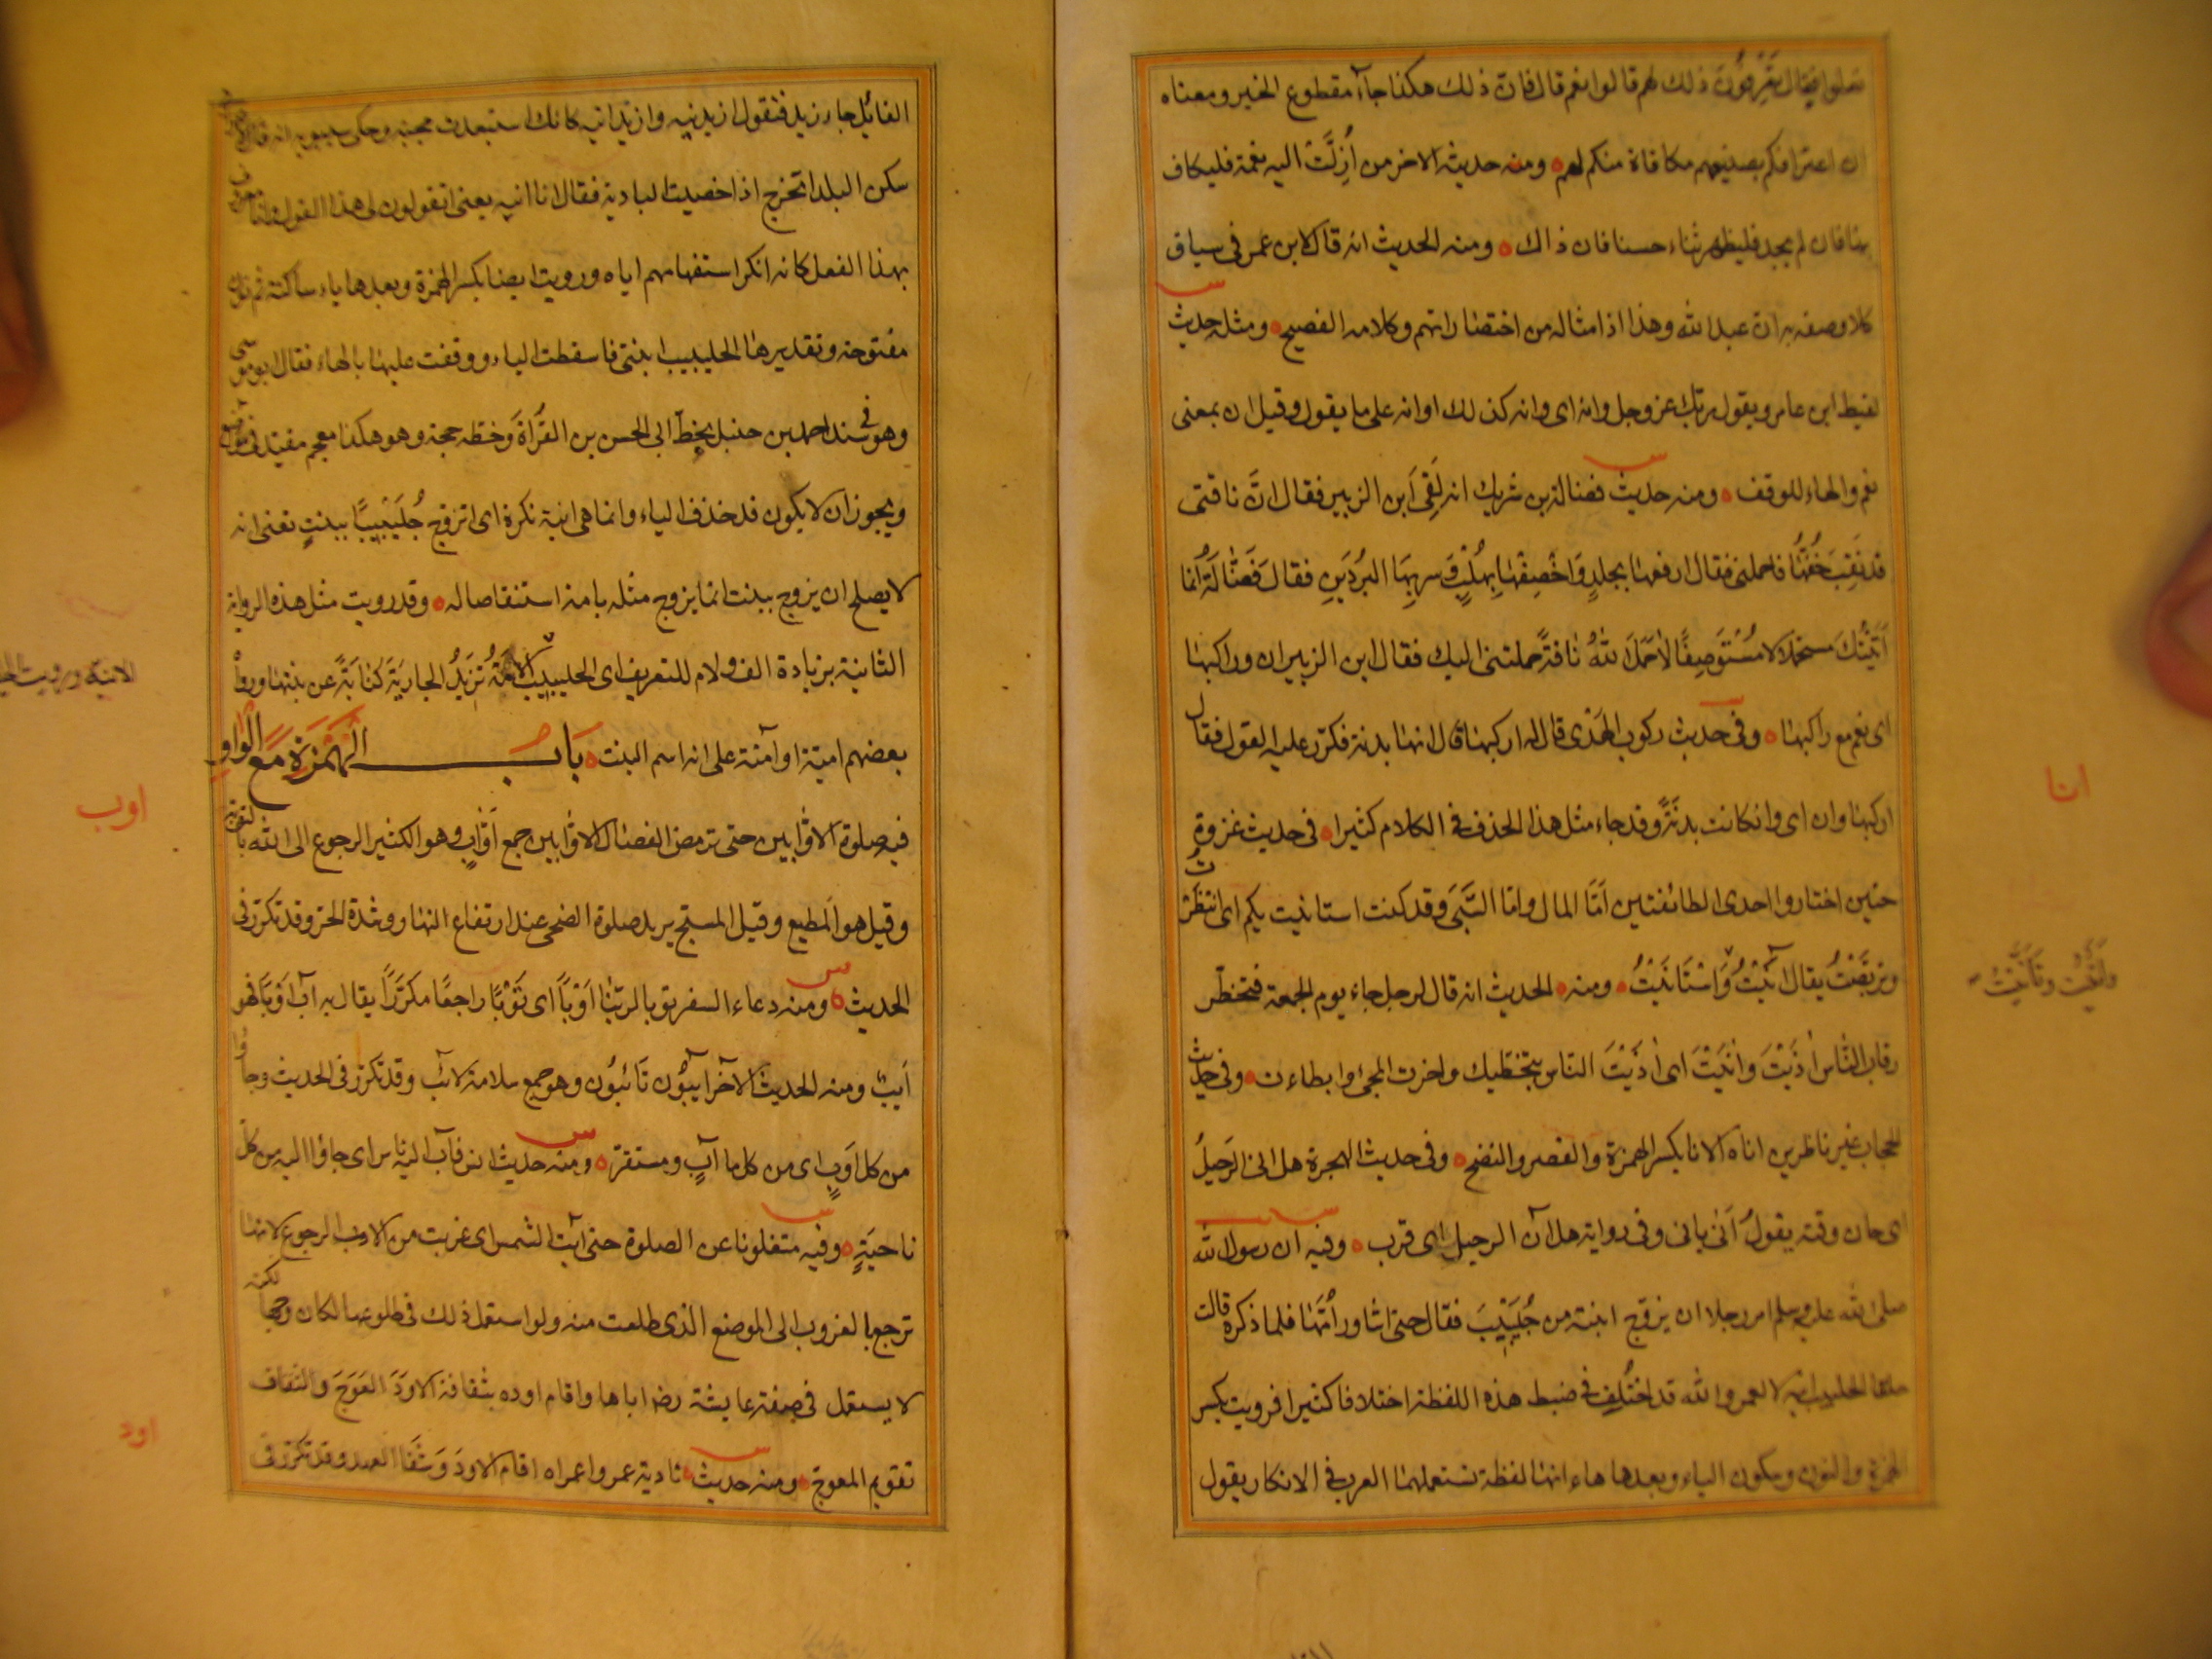 فقال تعرفون ذلك لهم قالوا نعم قال فان ذلك هكذا جاء مقطوع الخبر ومعناه
ان اعترافكم بصنيعهم مكافاة منكم لهم ومنه حديثه الاخر من أزِلَّت اليه نعمة فليكاف
بها فان لم يجد فليظهر ثناء حسنا فان ذلك ومنه الحديث انه قال لابن عمر في سياق
كلام وصفه به ان عبد الله وهذا اذا مثاله من اختصاراتهم وكلامه الفصيح ومثله حديث
لقيط ابن عامر ويقول ربك عز وجل وانه اى وانه كذلك او انه على ما يقول وقيل ان بمعنى
نعم والهاء للوقف ومنه حديث فضالة بن شريك انه لَقِىَ ابن الزبير فقال انّ ناقتى
قد نَقِبَ خُفُّهَا فاحملنى فقال ارقعها بجلدٍ وَاخْصِفْهَا بِهُلْبٍ وَسِربِهَا البَرْدَيْنِ فقال فَضَالَةُ انما
أَتَيْتُكَ مستحملا لا مُسْتَوْصِفًا لاَحَمَلَ اللهُ نَاقَةً حملتنى اليك فقال ابن الزبير ان وراكبها
اى نعم مع راكبها وفى حديث ركوب الهَدْى قال له اركبها قال انها بدنة فكرّر عليه القول فقال
اركبها وان اى وان كانت بدنَةً وقد جاء مثل هذا الحذف فى الكلام كثيرا فى حديث غزوة
حنين اختاروا احدى الطائفتين اَمَّا المال وامّا السَّبْىَ وَقد كنت استانيت بكم اى انتظرت
وتربَّصْتُ يقال انَيْتُ وَاسْتَانَيْتُ ومنه الحديث انه قال لرجل جاء يوم الجمعة فتخطّى
وانَّيْتُ وتَأنَّيْتُ
انا
رقاب النّاس اٰذَيْتَ وَاٰنَيْتَ اى اٰذَيْتَ الناس بتخطّيك واخرت المجئ وابطاءت وفى حديث
الحجاب غير ناظرين اناه الانا بكسر الهمزة والقصر والنضج وفى حديث الهجرة هل انى الرَحِيلُ
اى حان وقته يقولُ اَنىٰ يانى وفى رواية هل آن الرحيل اى قرب وفيه ان رسول الله
صلى الله عليه وسلم امر رجلا ان يزوّج ابنته من جُلَيْبِيْبَ فقال حتىٰ اشاور اُمَّهَا فلما ذكره قالت
حلقا الجليبيب انيه لا لعمر والله قد اختُلِف فى ضبط هذه اللفظة اختلافا كثيرا فرويت بكسر
الهمزة والنون وسكون الياء وبعدها هاء انها لفظة تستعملها العرب فى الانكار يقول
القائل جاء زيد فتقول ازيدنيه وازيدانيه كانك استبعدت مجيئه وحكى سيبويه انه قيل
سكن البلد اتخرج اذا اخصبت البادية فقال انا انيه يعنى اتقولون لى هذا القول وانا معروف
بهذا الفعل كانه انكر استفهامهم اياه ورويت ايضا بكسر الهمزة وبعدها ياء ساكنة ثم نون
مفتوحة وتقديرها الجليبيب ابنتى فاسقطت الياء ووقفت عليها بالهاء فقال ابو موسى
وهو فى مسند احمد بن حنبل بخط ابى الحسن بن الفُرَاةَ وخطه حجة وهو هكذا معجم مقيد فى مواضع
ويجوز ان لا يكون قد حذف الياء وانما هى ابنة نكرة اى اتزوّج جُلَيْبِيبًا ببنتٍ تعنى انه
لا يصلح ان يزوج ببنت انما يزوج مثله بامة استنقاصا له وقد رويت مثل هذه الرواية
الثانية بزيادة الف ولام للتعريف اى الجليبيب الامَةُ تريدُ الجارِيَةَ كنايَةً عن بنتها ورواه
بعضهم امية او آمنة على انه اسم البنت باب الهمزة مع الواو
اوب
فيه صلوة الاوّابين حتى ترمض الفصال الاوّابين جمع اَوّابٍ وهو الكثير الرجوع الى الله بالتوبة
وقيل هو المطيع وقيل المسبّح يريد صلوة الضحى عند ارتفاع النهار وشدة الحرّ وقد تكرّر فى
الحديث ومنه دعاء السفر توبا لربّنا اَوْباً اى تَوْبًا راجعًا مكرّرًا يقال به آب اَوْبًا فهو
آيبٌ ومنه الحديث الآخر آيبُون تَائبُون وهو جمع سلامة لآئب وقد تكرّر فى الحديث وجاؤا
من كل اَوَبٍ اى من كل ما آبٍ ومستقرّ ومنه حديث انس فآب اليه ناس اى جاؤا اليه من كل
ناحيَةٍ وفيه شغلونا عن الصلوة حتى آبت الشمس اى غربت من الاوب الرجوع لانها
ترجع بالغروب الى الموضع الذى طلعت منه ولو استعمل ذلك فى طلوعها لكان وجها لكنه
لا يستعمل فى صفة عايشة رض اباها واقام اوده بثقافة الاوَدَ العَوَجَ والثقاف
اود
تقويم المعوج ومنه حديث نادبة عمر واعمراه اقام الاودَ وَشفَا العمد وقد تكرّر فى